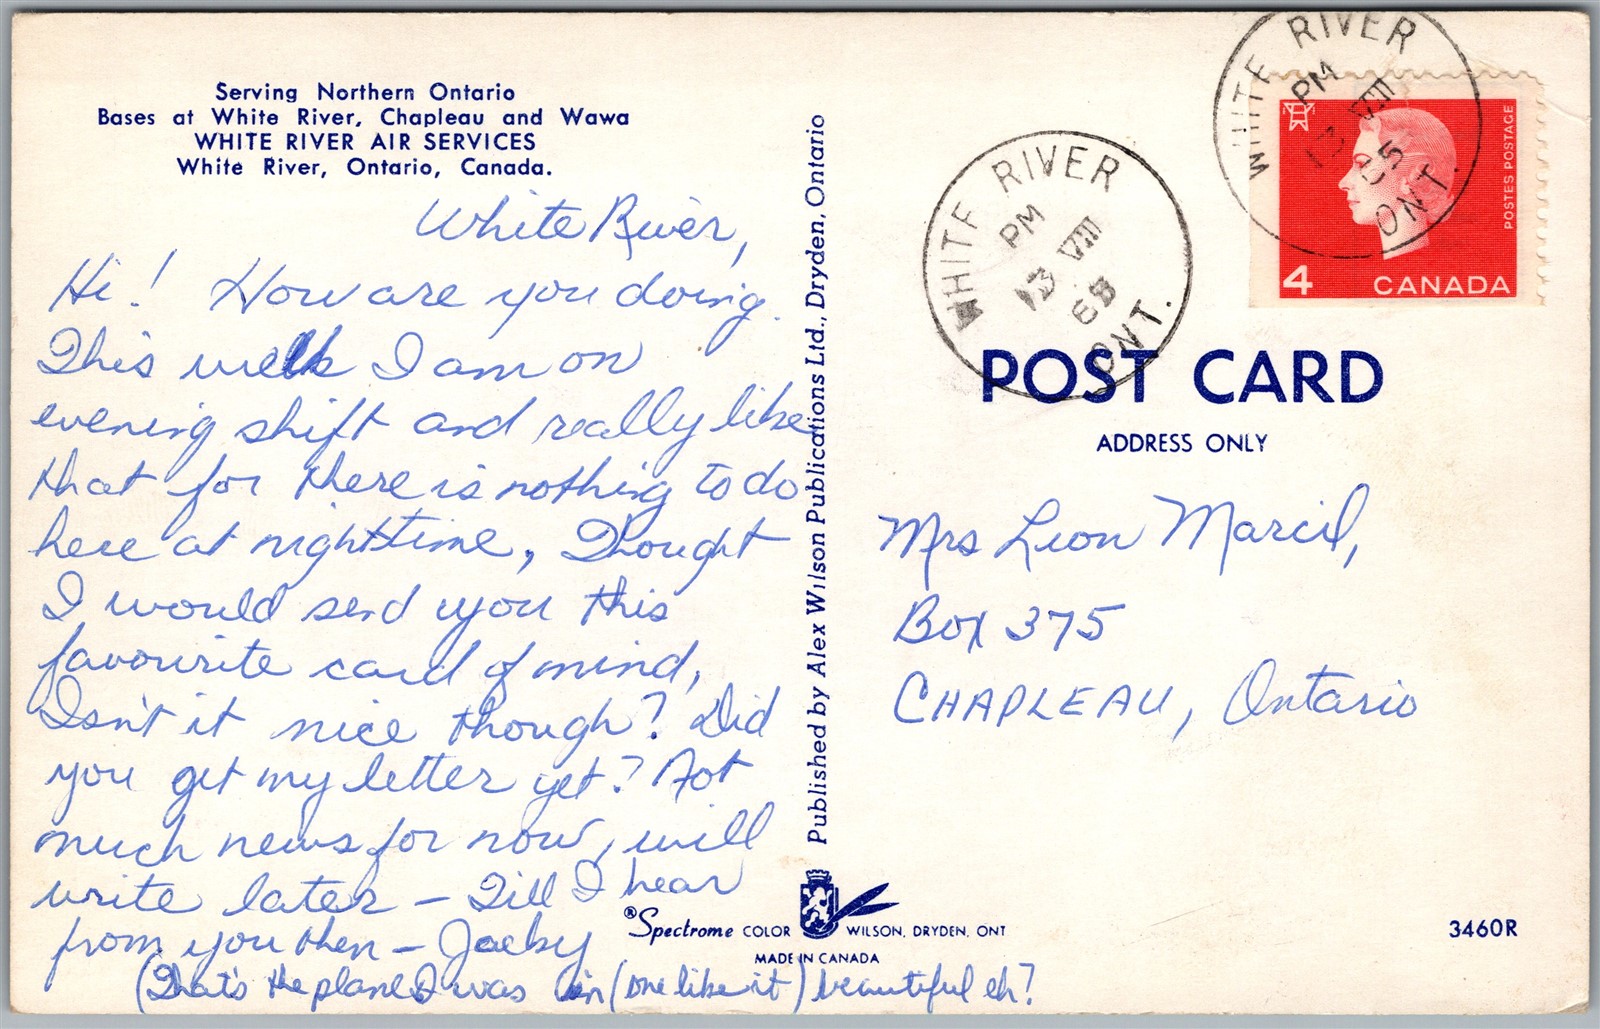 Serving Northern Ontario
Bases at White River, Chapleau and Wawa
WHITE RIVER AIR SERVICES
White River, Ontario, Canada.
White River,
Hi! How are you doing.
This week I am on
evening shift and really like
that for there is nothing to do
here at nighttime, Thought
I would send you this
favourite card of mind,
Isn't it nice though? Did
you get my letter yet? Not
much news for now, will
write later – Till I hear
from you then – Jacky
(That's the plane I was in (one like it) beautiful eh?
Published by Alex Wilson Publications Ltd., Dryden, Ontario
®Spectrome COLOR WILSON, DRYDEN, ONT
MADE IN CANADA
WHITE RIVER
PM
13 VIII
ONT.
WHITE RIVER
PM
13 VIII
65
ONT.
POSTES POSTAGE
4 CANADA
POST CARD
ADDRESS ONLY
Mrs Leon Marcil,
Box 375
CHAPLEAU, Ontario
3460R